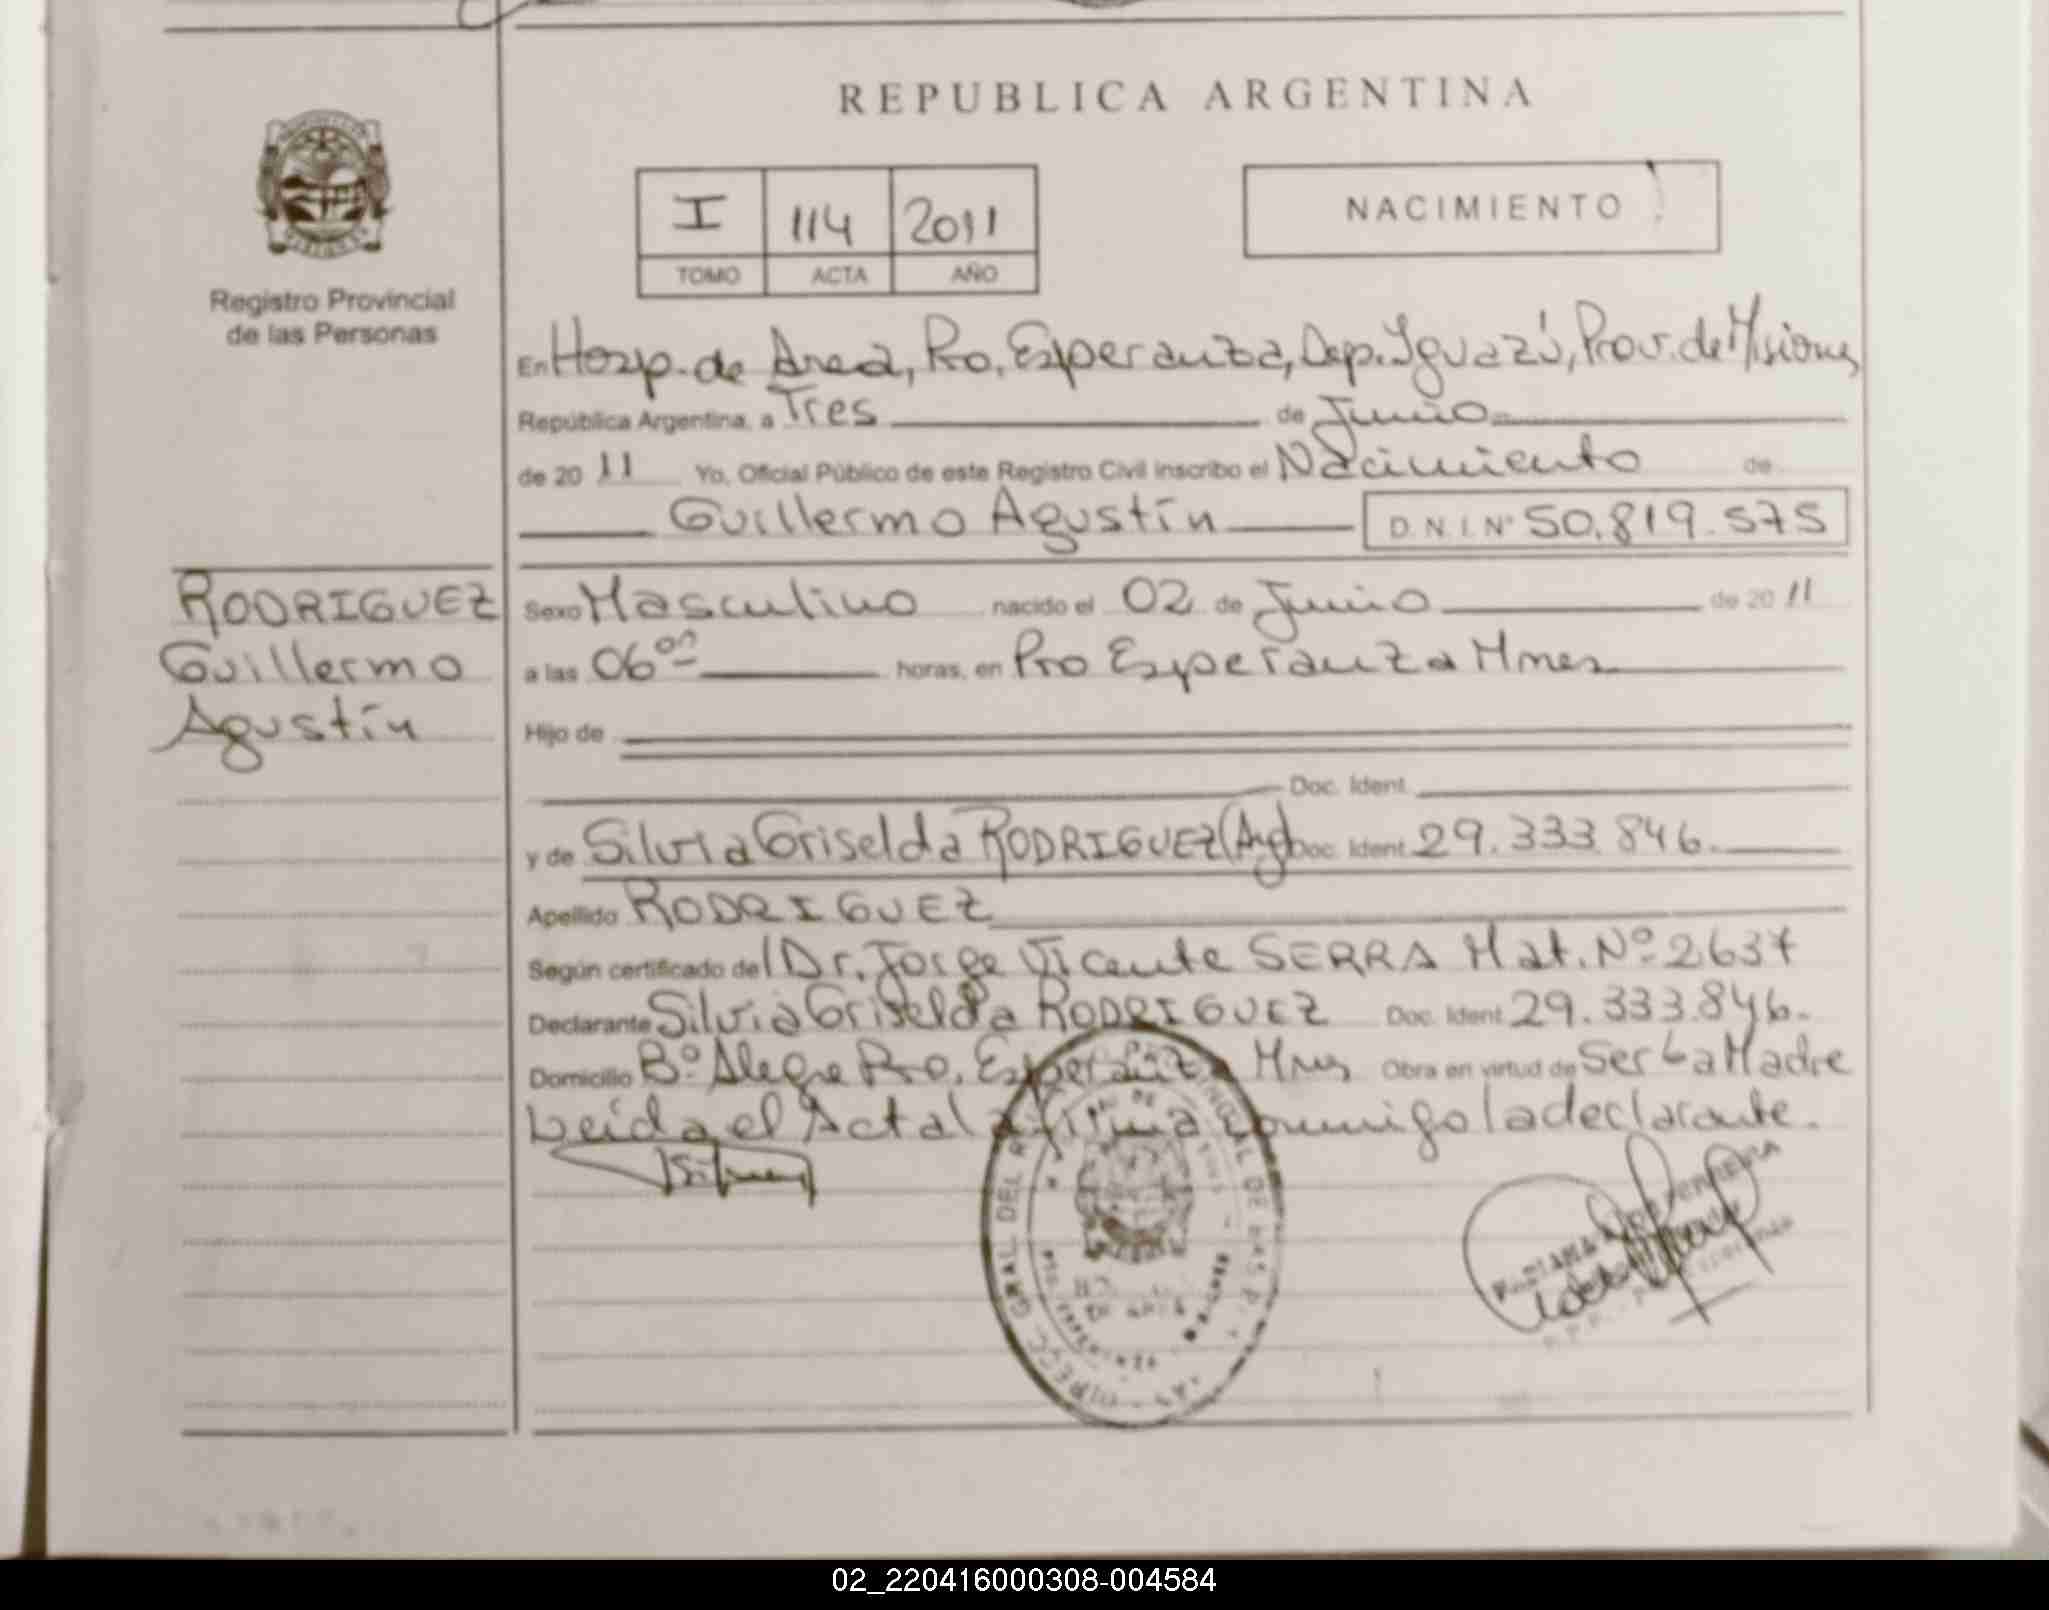 REPUBLICA ARGENTINA
I 114 2011
TOMO ACTA AÑO
NACIMIENTO
Registro Provincial
de las Personas
En Hosp. de Area, Pto. Esperanza, Dep. Iguazú, Prov. de Misiones
República Argentina, a Tres de Junio
de 20 11 Yo, Oficial Público de este Registro Civil inscribo el Nacimiento de
Guillermo Agustín D.N.I. Nº 50.819.575
RODRIGUEZ
Guillermo
Agustín
Sexo Masculino nacido el 02 de Junio de 20 11
a las 06 horas, en Pto Esperanza Mnes
Hijo de
Doc. Ident.
y de Silvia Griselda RODRIGUEZ (Arg) Doc. Ident. 29.333.846.
Apellido RODRIGUEZ
Según certificado del Dr. Jorge Vicente SERRA Mat. Nº 2637
Declarante Silvia Griselda RODRIGUEZ Doc. Ident. 29.333.846.
Domicilio Bº Alegre Pto. Esperanza Mnes Obra en virtud de Ser La Madre
Leida el Acta la firma conmigo la declarante.
02_220416000308-004584